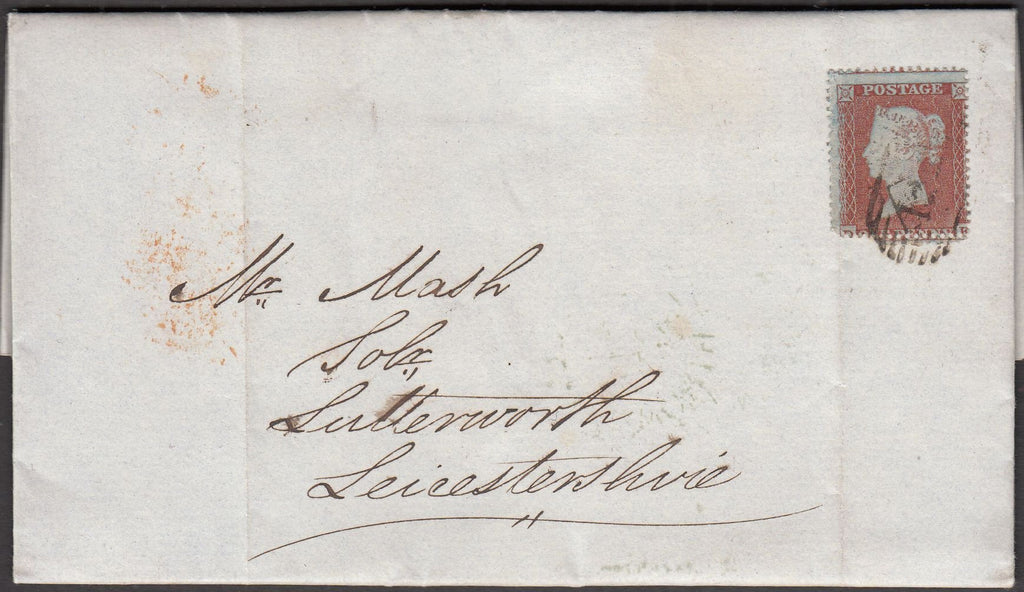 POSTAGE
Mr. Mash
Solr.
Lutterworth
Leicestershire